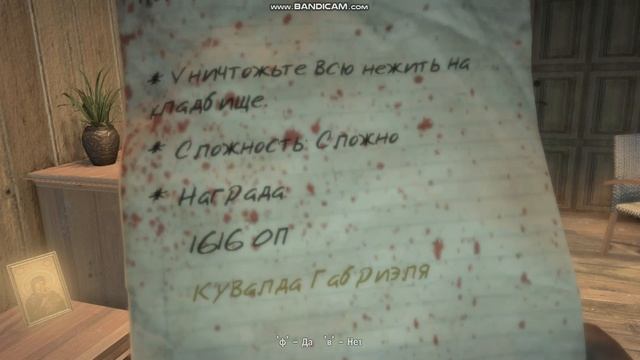 www.BANDICAM.com
* Уничтожьте всю нежить на
кладбище.
* Сложность: Сложно
* Награда
1616 ОП
Кувалда Габриэля
'ф' - Да 'в' - Нет